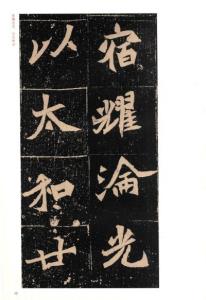 宿耀淪光
以太和廿